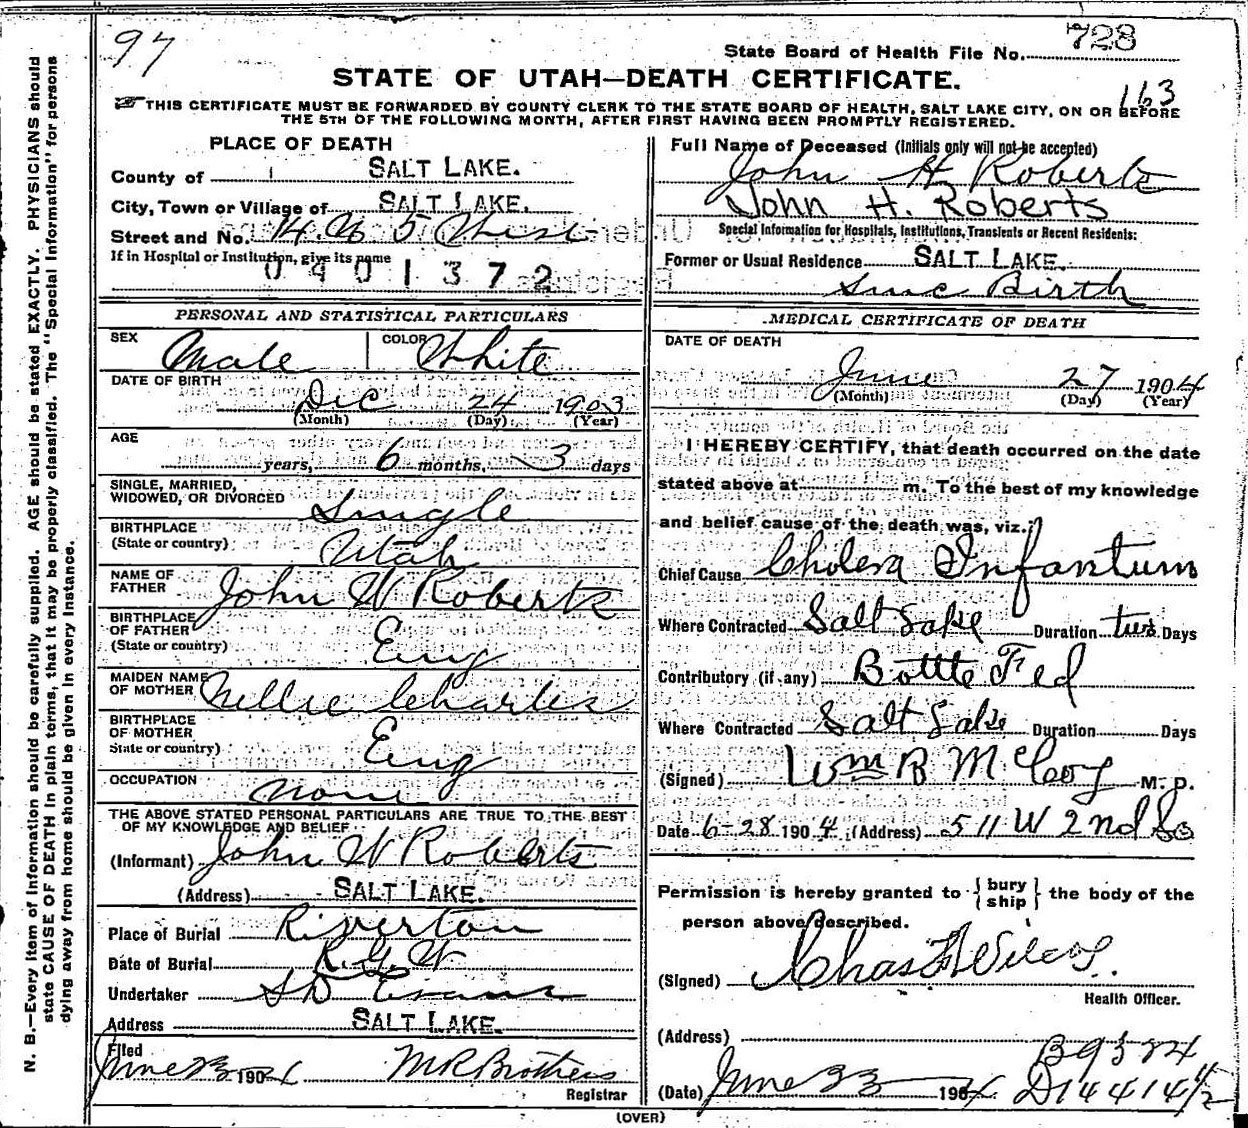 97
728
State Board of Health File No.
STATE OF UTAH—DEATH CERTIFICATE.
163
THIS CERTIFICATE MUST BE FORWARDED BY COUNTY CLERK TO THE STATE BOARD OF HEALTH, SALT LAKE CITY, ON OR BEFORE
THE 5TH OF THE FOLLOWING MONTH, AFTER FIRST HAVING BEEN PROMPTLY REGISTERED.
N. B.—Every item of information should be carefully supplied. AGE should be stated EXACTLY. PHYSICIANS should
state CAUSE OF DEATH in plain terms, that it may be properly classified. The "Special Information" for persons
dying away from home should be given in every instance.
PLACE OF DEATH
County of SALT LAKE.
City, Town or Village of SALT LAKE.
Street and No. 5 West
If in Hospital or Institution, give its name
0401372
PERSONAL AND STATISTICAL PARTICULARS
SEX Male COLOR White
DATE OF BIRTH Dec 24 1903
(Month) (Day) (Year)
AGE years, 6 months, 3 days
SINGLE, MARRIED,
WIDOWED, OR DIVORCED Single
BIRTHPLACE
(State or country) Utah
NAME OF
FATHER John W Roberts
BIRTHPLACE
OF FATHER Eng
(State or country)
MAIDEN NAME
OF MOTHER Nellie Charles
BIRTHPLACE
OF MOTHER Eng
State or country)
OCCUPATION None
THE ABOVE STATED PERSONAL PARTICULARS ARE TRUE TO THE BEST
OF MY KNOWLEDGE AND BELIEF
(Informant) John W Roberts
(Address) SALT LAKE.
Place of Burial Riverton
Date of Burial R.G.W
Undertaker S D Evans
Address SALT LAKE.
Filed
June 1904 M R Brothers
Registrar
Full Name of Deceased (Initials only will not be accepted)
John H Roberts
John H. Roberts
Special Information for Hospitals, Institutions, Transients or Recent Residents:
Former or Usual Residence SALT LAKE.
Since Birth
MEDICAL CERTIFICATE OF DEATH
DATE OF DEATH
June 27 1904
(Month) (Day) (Year)
I HEREBY CERTIFY, that death occurred on the date
stated above at m. To the best of my knowledge
and belief cause of the death was, viz.:
Chief Cause Cholera Infantum
Where Contracted Salt Lake Duration Days
Contributory (if any) Bottle Fed
Where Contracted Salt Lake Duration Days
(Signed) Wm B McCoy M. D.
Date 6-28 1904 (Address) 511 W 2nd So
Permission is hereby granted to { bury
ship } the body of the
person above described.
(Signed) Chas F Wilcox
Health Officer.
(Address)
B9524
(Date) June 1904 D14414 1/2
(OVER)